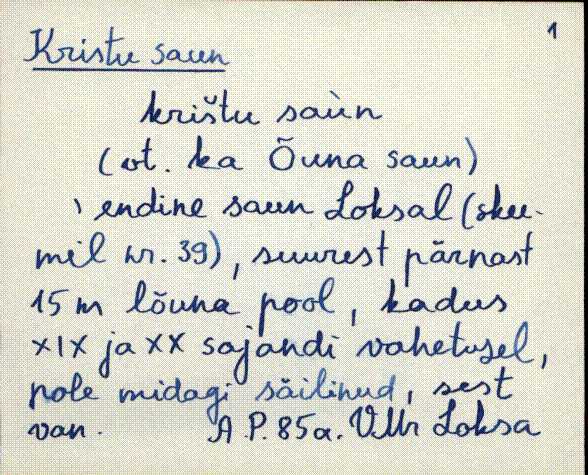 1
Kristu saun
krištu saùn
(vt. ka Õuna saun)
, endine saun Loksal (skee-
mil nr. 39), suurest pärnast
15 m lõuna pool, kadus
XIX ja XX sajandi vahetusel,
pole midagi säilinud, sest
van. A. P. 85a. VMr Loksa